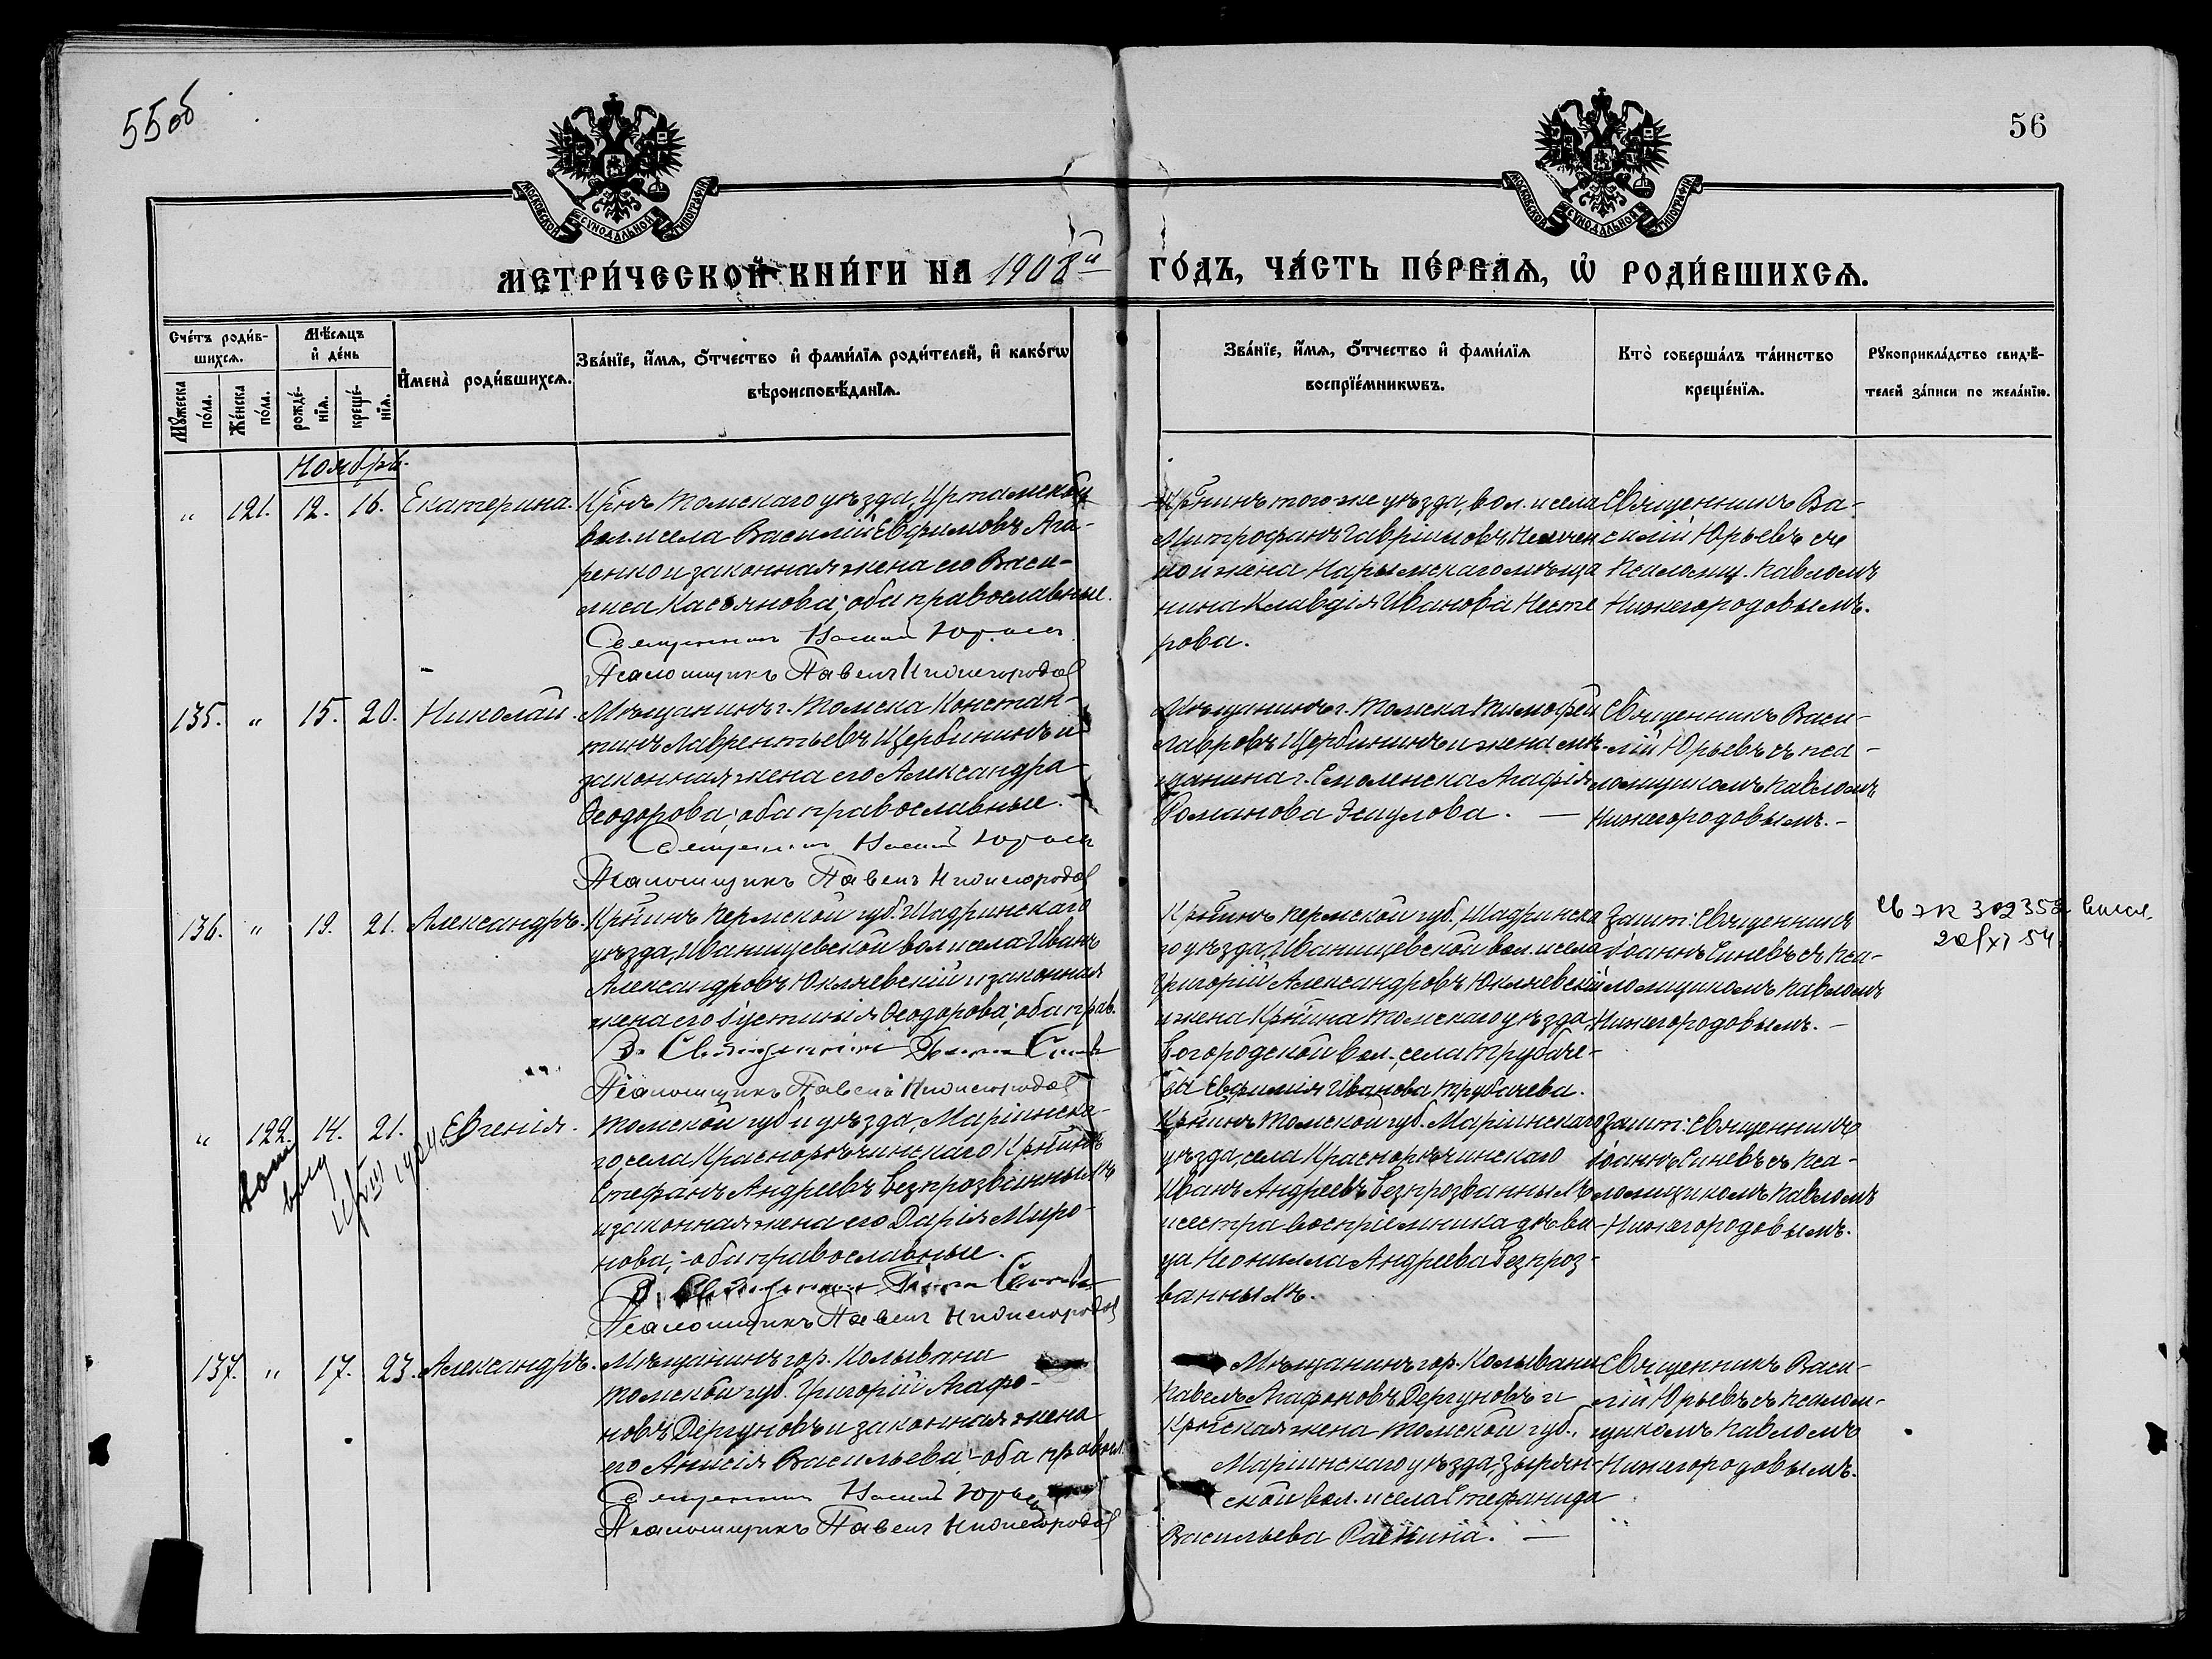 55об
56
МОСКОВСКОЙ СѴНОДАЛЬНОЙ ТИПОГРАФІИ
МОСКОВСКОЙ СѴНОДАЛЬНОЙ ТИПОГРАФІИ
МЕТРИ́ЧЕСКОЙ КНИ́ГИ НА 1908й ГО́ДЪ, ЧА́СТЬ ПЕ́РВАѦ, Ѡ҆ РОДИ́ВШИХСѦ.
Сче́тъ роди́в-
шихсѧ.
Мꙋ́жеска по́ла.
Же́нска по́ла.
Мѣ́сѧцъ
и҆ де́нь
рожде́-
нїѧ.
креще́-
нїѧ.
И҆мена̀ роди́вшихсѧ.
Зва́нїе, и҆́мѧ, ѻ҆́тчество и҆ фами́лїѧ роди́телей, и҆ како́гѡ
вѣроисповѣ́данїѧ.
Зва́нїе, и҆́мѧ, ѻ҆́тчество и҆ фами́лїѧ
воспрїе́мникѡвъ.
Кто̀ соверша́лъ та́инство
креще́нїѧ.
Рꙋкоприкла́дство свидѣ́-
телей за́писи по жела́нїю.
Ноябрь.
" 121. 12. 16. Екатерина.
Кр̅нъ Томскаго уѣзда, Уртамской
вол. и села Василій Евфимовъ Ага-
ренко и законная жена его Васи-
лиса Касьянова; оба православные.
Священникъ Василій Юрьевъ
Псаломщикъ Павелъ Нижегородов
Кр̅нинъ того же уѣзда, вол. и села
Митрофанъ Гавріиловъ
жена Нарымскаго мѣща
нина Клавдія Иванова Несте
рова.
Священникъ Ва-
силій Юрьевъ съ
Псаломщ. Павломъ
Нижегородовымъ.
135. " 15. 20. Николай.
Мѣщанинъ г. Томска Констан-
тинъ Лаврентьевъ Щербининъ и
законная жена его Александра
Ѳеодорова; оба православные.
Священникъ Василій Юрьевъ
Псаломщикъ Павелъ Нижегородов
Мѣщанинъ г. Томска Тимофей
Лавровъ Щербининъ и жена мѣ-
щанина г. Смоленска Агафія
Романова Эсаулова. —
Священникъ Васи-
лій Юрьевъ съ пса-
ломщикомъ Павломъ
Нижегородовымъ. -
136. " 19. 21. Александръ.
Кр̅нинъ Пермской губ. Шадринскаго
уѣзда, Иванищевской вол. и села Иванъ
Александровъ Юкляевский и законная
жена его Іустинія Ѳеодорова; оба прав.
З. Священникъ Іоаннъ Синевъ
Псаломщикъ Павелъ Нижегородов
Кр̅нинъ Пермской губ., Шадринска
го уѣзда, Иванищевской вол. и села
Григорій Александровъ Юкляевскій
и жена Кр̅нина Томскаго уѣзда,
Богородской вол., села Трубаче-
ва Евфимія Иванова Трубачева.
Зашт: Священникъ
Іоаннъ Синевъ съ пса-
ломщикомъ Павломъ
Нижегородовымъ. -
302352
20/XI 54
" 122. 14. 21. Евгенія.
Томской губ и уѣзда, Маріинска-
го, села Краснорѣчинскаго Кр̅нинъ
Стефанъ Андреевъ Безпрозванныхъ
и законная жена его Дарія Миро-
нова; оба православные.
З. Священникъ Іоаннъ Синевъ
Псаломщикъ Павелъ Нижегородов
Кр̅нинъ Томской губ. Маріинскаго
уѣзда, села Краснорѣчинскаго
Иванъ Андреевъ Безпрозванныхъ
и сестра воспріемника дѣви-
ца Неонилла Андреева Безпроз-
ванныхъ.
Зашт: Священникъ
Іоаннъ Синевъ съ пса-
ломщикомъ Павломъ
Нижегородовымъ.
137. " 17. 23. Александръ.
Мѣщанинъ гор. Колывани
Томской губ. Григорій Агафо-
новъ Дергуновъ и законная жена
его Анисія Васильева; оба правосл.
Священникъ Василій Юрьевъ
Псаломщикъ Павелъ Нижегородов
Мѣщанинъ гор. Колывани
Павелъ Агафоновъ Дергуновъ и
Кр̅нская жена Томской губ.,
Маріинскаго уѣзда, Зырян-
ской вол. и села Стефанида
Васильева Раскина. —
Священникъ Васи-
лій Юрьевъ съ псалом-
щикомъ Павломъ
Нижегородовымъ.